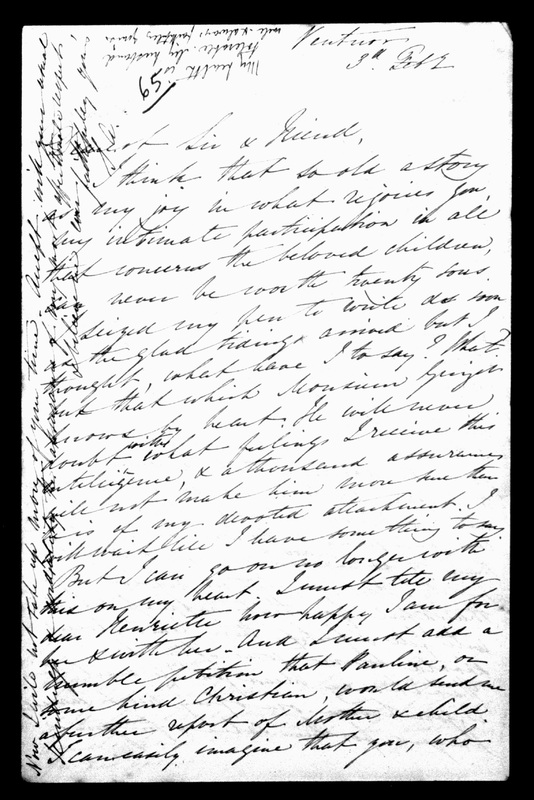 Ventnor
3d Feby
59
Sir & Friend,
I think that so old a story
as my joy in what rejoices you,
my intimate participation in all
that concerns the beloved children,
can never be worth twenty sous.
I seized my pen to write as soon
as the glad tidings arrived but I
thought, what have I to say? What
but that which Monsieur
knows by heart. He will never
doubt with what feelings I receive this
intelligence, & a thousand assurances
will not make him more sure than
he is of my devoted attachment. I
will wait till I have something to say
But I can go on no longer with
this on my heart. I must tell my
dear Henriette how happy I am for
her & with her. And I must add a
humble petition that Pauline, or
some kind Christian, would send me
a further report of Mother & child.
I can easily imagine that you, who
Now I will not take up more of your time. Accept with your usual
of my most affectionate respect,
& believe me ever faithfully yours
My health is
tolerable. My husband
well & always faithfully yours